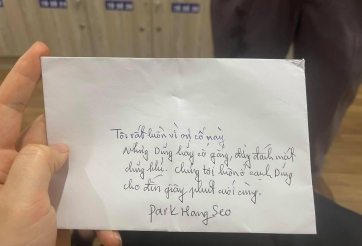 Tôi rất buồn vì sự cố này.
Nhưng Dũng hãy cố gắng, đừng đánh mất
dũng khí. Chúng tôi luôn ở cạnh Dũng
cho đến giây phút cuối cùng.
Park Hang Seo